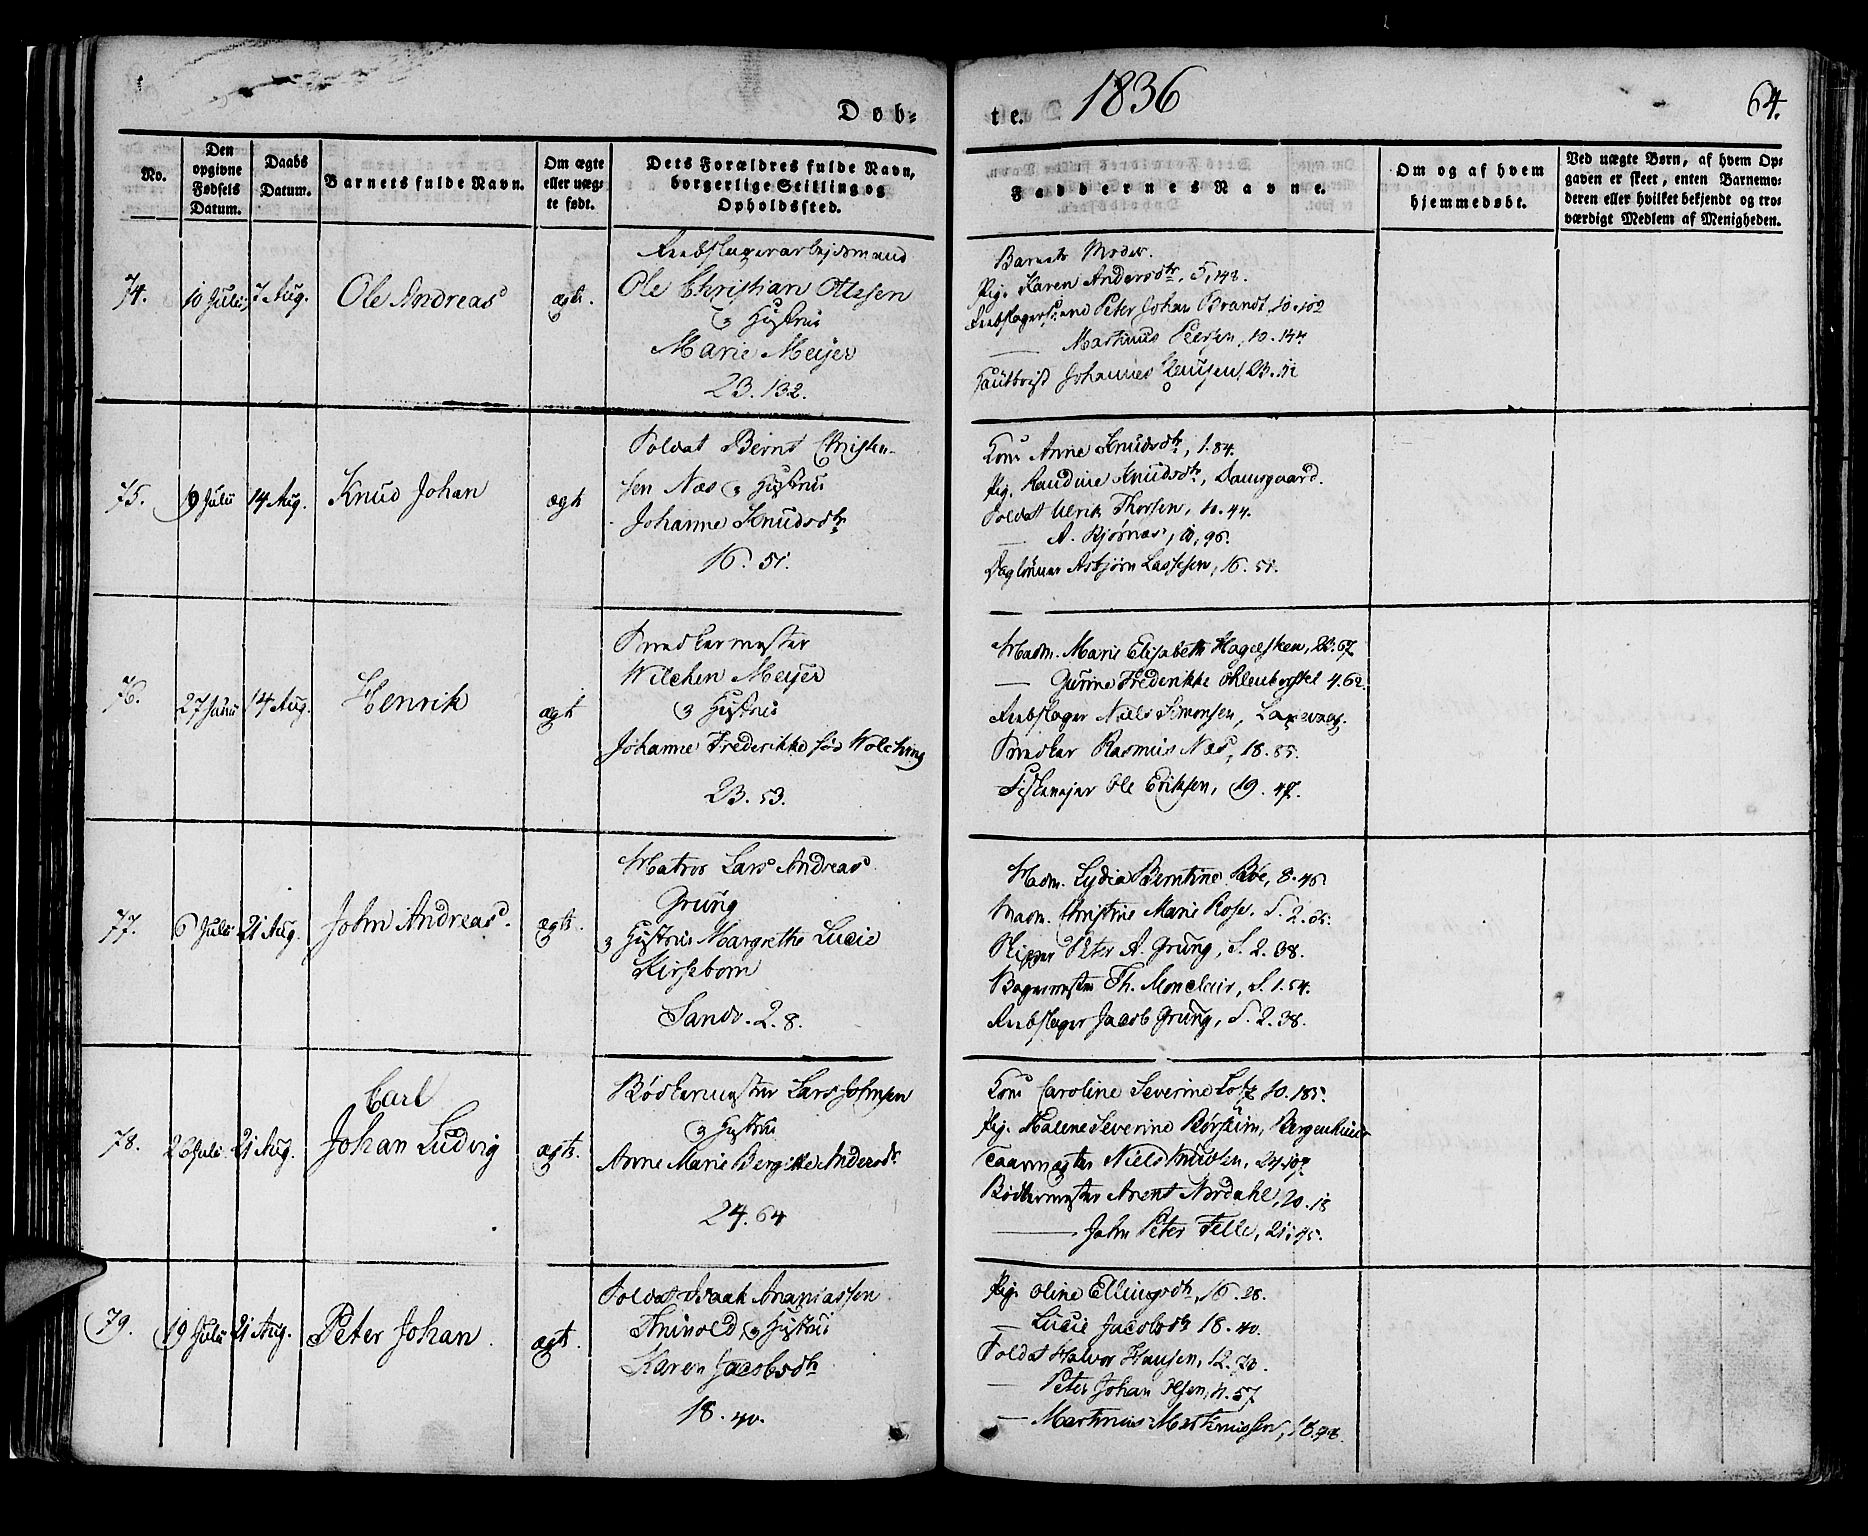 Døb=
te.
1836
64.
No.
Den opgivne Fødsels Datum.
Daabs Datum.
Barnets fulde Navn.
Om ægte eller uæg= te født.
Dets Forældres fulde Navn, borgerlige Stilling og Opholdssted.
Faddernes Navne.
Om og af hvem hjemmedøbt.
Ved uægte Børn, af hvem Op= gaven er skeet, enten Barnemo= deren eller hvilket bekjendt og tro= værdigt Medlem af Menigheden.
74.
10 Juli
7 Aug.
Ole Andreas
ægt.
Reebslagerarbejdsmand
Ole Christian Olssen
og Hustrue
Marie Meijer
23.132.
Barnets Moder.
Pig. Karen Andersdtr, 5,148.
Peter Johan Brandt, 10.102
Martinus Peersen, 10.144
Johannes
75.
19 Juli
14 Aug.
Knud Johan
ægt
Soldat Bernt Christen-
sen Næs og Hustrue
Johanne Knudsdtr
16. 51.
Kone Anne Knudsdtr, 1.84.
Pig. Randine Knudsdtr, Damsgaard.
Soldat Ulrik Thorsen, 10.44.
— A. Bjørnæs, 10,96.
Daglønner Asbjørn Lassesen, 16.51.
76.
27 Juni
14 Aug.
Henrik
ægt
Snedkermester
Wilchen Meijer
og Hustrue
Johanne Frederikke fød Wolching
23.53.
Madm. Marie Elisabeth Hagelsteen, 22.67
— Gurine Frederikke 4.62.
Reebslager Niels Simonsen, Laxevaag.
Snedker Rasmus Næs, 18.85.
Ole Eriksen, 19.47.
77.
6 Juli
21 Aug.
John Andreas.
ægte.
Matros Lars Andreas
Grung
og Hustrue Margrethe Lucie
Kirsebom
Sandv. 2.8.
Madm. Lydia Berntine Bøe, 8.45
Madm. Christine Marie Rose, S.2.
Skipper Peter A. Grung, S.2.38.
Bagermester Th. Monclair, S.1.54.
Reebslager Jacob Grung, S.2.38.
78.
21 Aug.
Carl
Johan Ludvig
ægte.
Bødkermester Lars Johnsen
og Hustrue
Anne Marie Bergitte Andersdr.
24.64
Kone Caroline Severine Lotz 10.185.
Pig. Malene Severine Børsheim, Bergenhuus
Niels Knudsen, 24.
Bødkermester Arent Nordahl, 20.18
— John Peter Felle, 21.45.
79.
19 Juli
21 Aug.
Peter Johan.
ægt.
Soldat Isaak Ananiassen
og Hustrue
Karen Jacobsdtr
18.40.
Pig. Oline Ellingsdtr, 16.28.
— Lucie Jacobsdtr 18.40.
Soldat Halvor Hansen, 12.20.
— Peter Johan Olsen, 4.57
— Martinus Martinussen, 18.48.